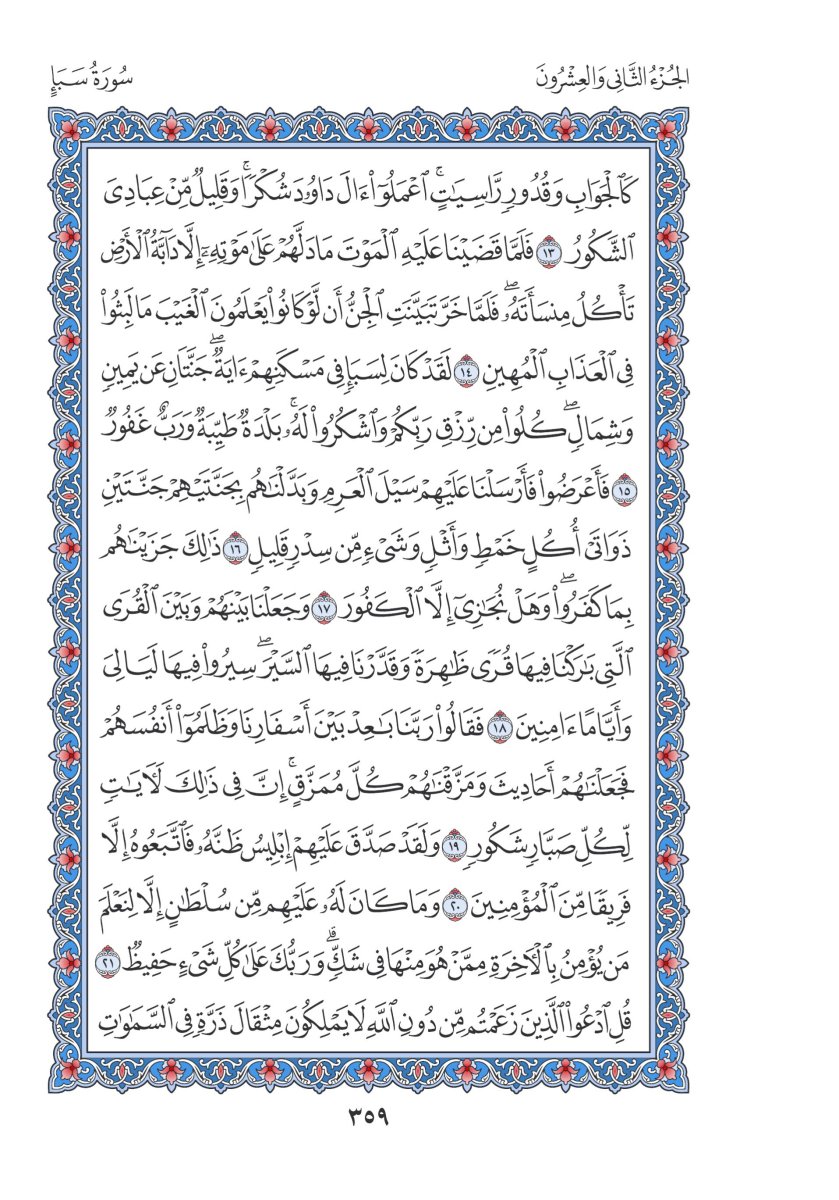 الجُزْءُ الثَّانِي وَالعِشْرُونَ
سُورَةُ سَبَإٍ
كَٱلۡجَوَابِ وَقُدُورٖ رَّاسِيَٰتٍۚ ٱعۡمَلُوٓاْ ءَالَ دَاوُۥدَ شُكۡرٗاۚ وَقَلِيلٞ مِّنۡ عِبَادِيَ
ٱلشَّكُورُ ١٣ فَلَمَّا قَضَيۡنَا عَلَيۡهِ ٱلۡمَوۡتَ مَا دَلَّهُمۡ عَلَىٰ مَوۡتِهِۦٓ إِلَّا دَآبَّةُ ٱلۡأَرۡضِ
تَأۡكُلُ مِنسَأَتَهُۥۖ فَلَمَّا خَرَّ تَبَيَّنَتِ ٱلۡجِنُّ أَن لَّوۡ كَانُواْ يَعۡلَمُونَ ٱلۡغَيۡبَ مَا لَبِثُواْ
فِي ٱلۡعَذَابِ ٱلۡمُهِينِ ١٤ لَقَدۡ كَانَ لِسَبَإٖ فِي مَسۡكَنِهِمۡ ءَايَةٞۖ جَنَّتَانِ عَن يَمِينٖ
وَشِمَالٖۖ كُلُواْ مِن رِّزۡقِ رَبِّكُمۡ وَٱشۡكُرُواْ لَهُۥۚ بَلۡدَةٞ طَيِّبَةٞ وَرَبٌّ غَفُورٞ
١٥ فَأَعۡرَضُواْ فَأَرۡسَلۡنَا عَلَيۡهِمۡ سَيۡلَ ٱلۡعَرِمِ وَبَدَّلۡنَٰهُم بِجَنَّتَيۡهِمۡ جَنَّتَيۡنِ
ذَوَاتَيۡ أُكُلٍ خَمۡطٖ وَأَثۡلٖ وَشَيۡءٖ مِّن سِدۡرٖ قَلِيلٖ ١٦ ذَٰلِكَ جَزَيۡنَٰهُم
بِمَا كَفَرُواْۖ وَهَلۡ نُجَٰزِيٓ إِلَّا ٱلۡكَفُورَ ١٧ وَجَعَلۡنَا بَيۡنَهُمۡ وَبَيۡنَ ٱلۡقُرَى
ٱلَّتِي بَٰرَكۡنَا فِيهَا قُرٗى ظَٰهِرَةٗ وَقَدَّرۡنَا فِيهَا ٱلسَّيۡرَۖ سِيرُواْ فِيهَا لَيَالِيَ
وَأَيَّامًا ءَامِنِينَ ١٨ فَقَالُواْ رَبَّنَا بَٰعِدۡ بَيۡنَ أَسۡفَارِنَا وَظَلَمُوٓاْ أَنفُسَهُمۡ
فَجَعَلۡنَٰهُمۡ أَحَادِيثَ وَمَزَّقۡنَٰهُمۡ كُلَّ مُمَزَّقٍۚ إِنَّ فِي ذَٰلِكَ لَأٓيَٰتٖ
لِّكُلِّ صَبَّارٖ شَكُورٖ ١٩ وَلَقَدۡ صَدَّقَ عَلَيۡهِمۡ إِبۡلِيسُ ظَنَّهُۥ فَٱتَّبَعُوهُ إِلَّا
فَرِيقٗا مِّنَ ٱلۡمُؤۡمِنِينَ ٢٠ وَمَا كَانَ لَهُۥ عَلَيۡهِم مِّن سُلۡطَٰنٍ إِلَّا لِنَعۡلَمَ
مَن يُؤۡمِنُ بِٱلۡأٓخِرَةِ مِمَّنۡ هُوَ مِنۡهَا فِي شَكّٖۗ وَرَبُّكَ عَلَىٰ كُلِّ شَيۡءٍ حَفِيظٞ ٢١
قُلِ ٱدۡعُواْ ٱلَّذِينَ زَعَمۡتُم مِّن دُونِ ٱللَّهِ لَا يَمۡلِكُونَ مِثۡقَالَ ذَرَّةٖ فِي ٱلسَّمَٰوَٰتِ
٣٥٩